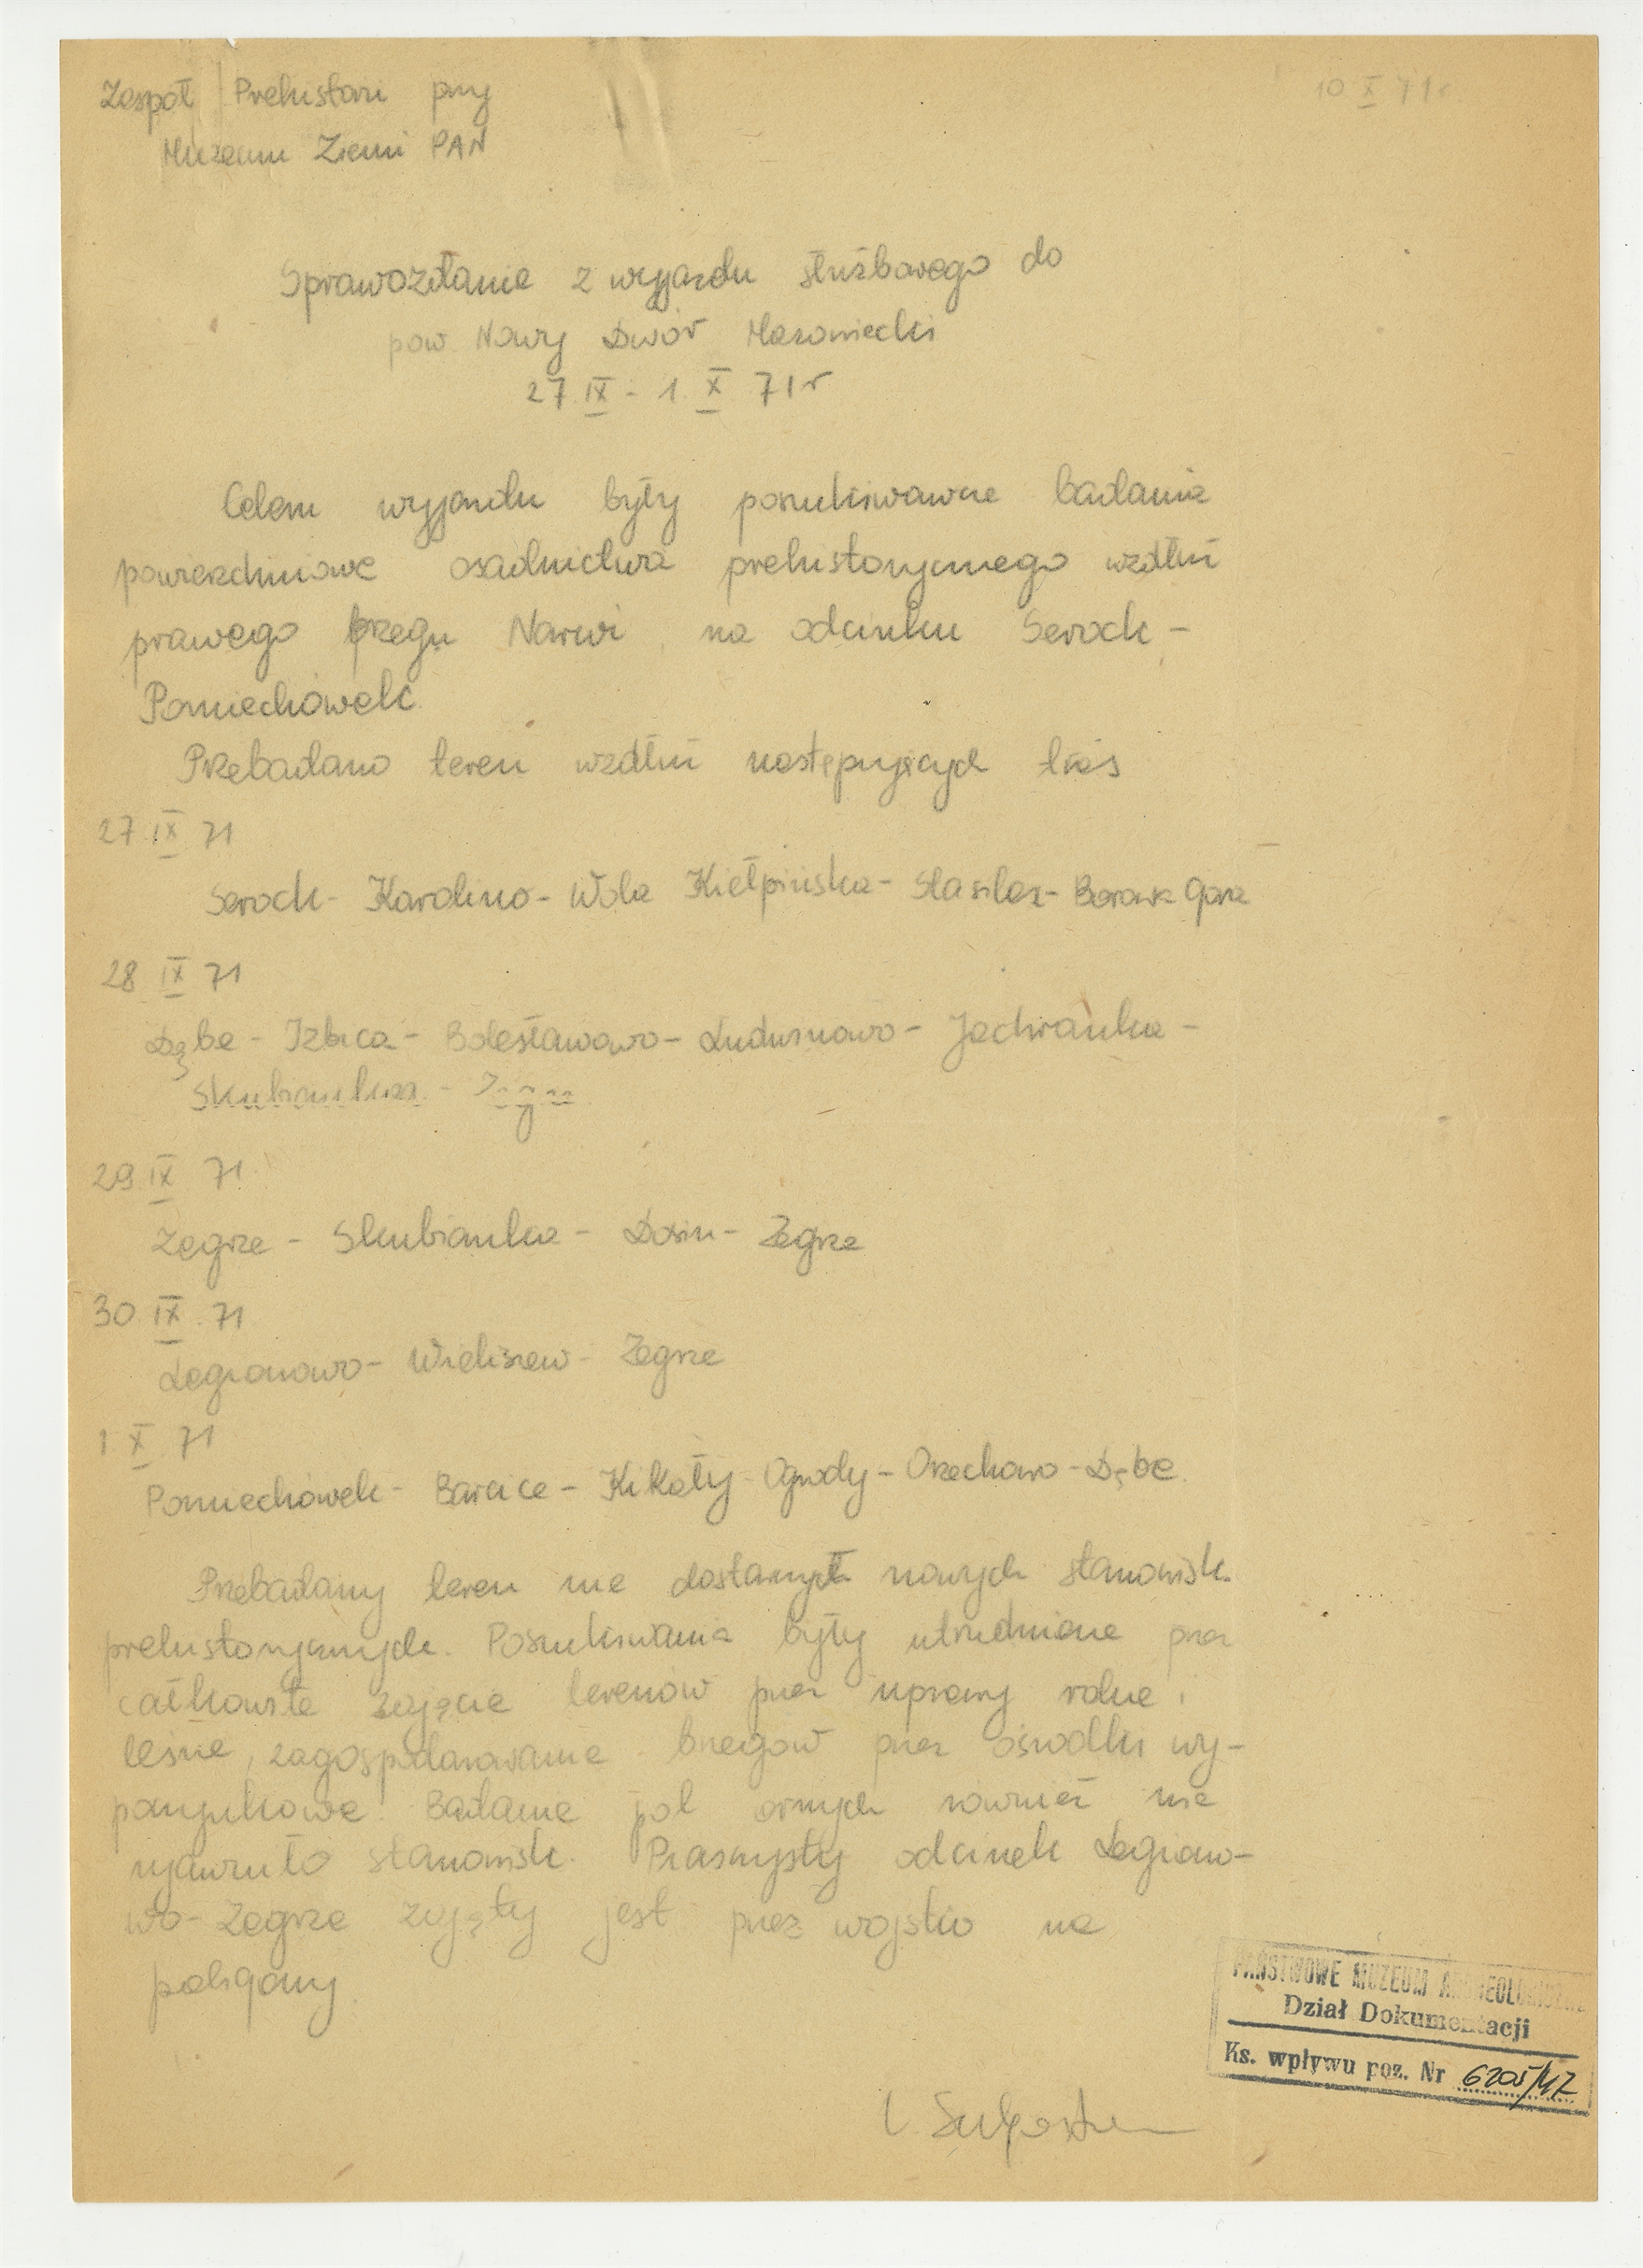 10 X 71 r.
Zespół Prehistorii przy
Muzeum Ziemi PAN
Sprawozdanie z wyjazdu służbowego do
pow. Nowy Dwór Mazowiecki
27 IX - 1 X 71 r
Celem wyjazdu były poszukiwawcze badania
powierzchniowe osadnictwa prehistorycznego wzdłuż
prawego brzegu Narwi na odcinku Serock -
Pomiechówek
Przebadano teren wzdłuż następujących tras
27 IX 71
Serock - Karolino - Wola Kiełpińska - Stasilas - Borowa Góra
28 IX 71
Dębe - Izbica - Bolesławowo - Ludwinowo - Jachranka -
Skubianka -
29 IX 71
Zegrze - Skubianka - Dosin - Zegrze
30 IX 71
Legionowo - Wieliszew - Zegrze
1 X 71
Pomiechówek - Barcice - Kikoły - Ogrody - Orzechowo - Dębe.
Przebadany teren nie dostarczył nowych stanowisk
prehistorycznych. Poszukiwania były utrudnione przez
całkowite zajęcie terenów przez uprawy rolne i
leśne, zagospodarowanie brzegów przez ośrodki wy-
poczynkowe. Badanie pól ornych również nie
ujawniło stanowisk. Piaszczysty odcinek Legiono-
wo - Zegrze zajęty jest przez wojsko na
poligony.
PAŃSTWOWE MUZEUM ARCHEOLOGICZNE
Dział Dokumentacji
Ks. wpływu poz. Nr 6205/47